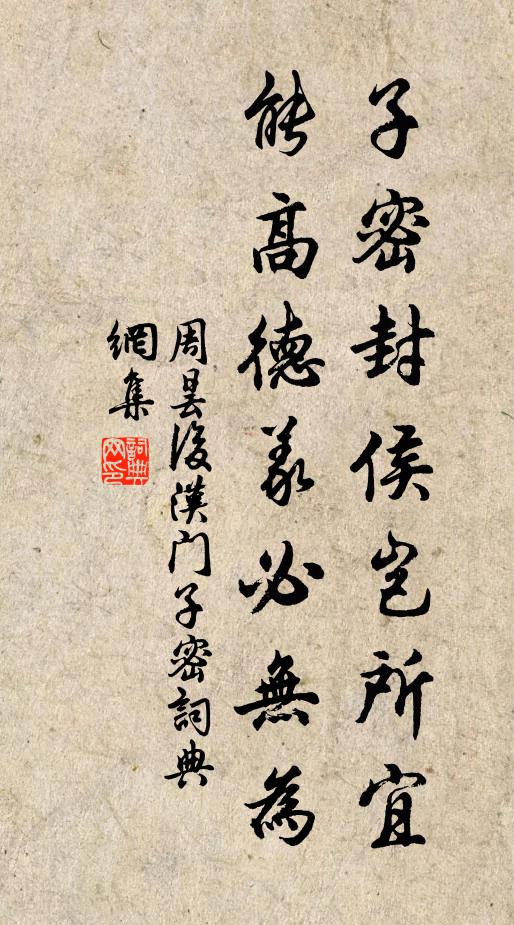 子密封侯岂所宜
能高德義必無為
周曇後漢门子密詞典
網集
詞典
网印